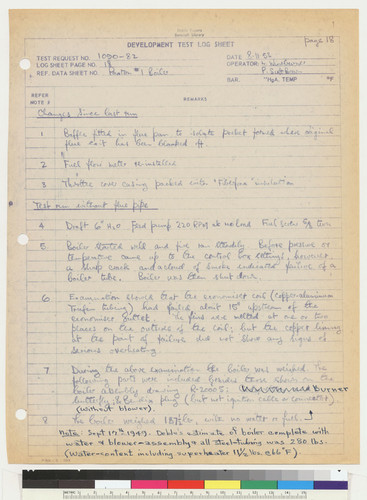 page 18
DEVELOPMENT TEST LOG SHEET
TEST REQUEST NO. 1000-82
DATE 8.11.52
LOG SHEET PAGE NO. 18
OPERATOR:
REF. DATA SHEET NO. #1 Boiler
BAR. "Hg.A. TEMP °F
REFER
NOTE #
REMARKS
Changes since last run
1 Baffle fitted in flue pan to isolate pocket formed where original
flue exit has been blanked off.
2 Fuel flow meter re-installed
3 Throttle cover casing packed with "Fiberfrax" insulation
Test run without flue pipe
4 Draft 6" H2O Feed pump 220 RPM at no load Fuel
5 Boiler started well and fire ran steadily. Before pressure or
temperature came up to the control box settings, however
a sharp crack and a cloud of smoke indicated failure of a
boiler tube. Boiler was then shut down.
6 Examination showed that the economiser coil (copper-aluminium
tubing) had failed about 18" upstream of the
economiser outlet. The fins had melted at one or two
places on the outside of the coil; but the copper tubing
at the point of failure did not show any signs of
serious overheating
7 During the above examination the boiler was weighed. The
following parts were included besides those shown on the
boiler assembly drawing R-20005: Burner
(but not ignition coils or connectors)
(without blower).
8 The boiler weighed 187½ lbs. with no water or fuel.
Note: Sept 17th 1949. Doble's estimate of boiler complete with
water & blower-assembly & all steel-tubing was 280 lbs.
(Water-content including superheater 11⅛ lbs. @ 66°F)